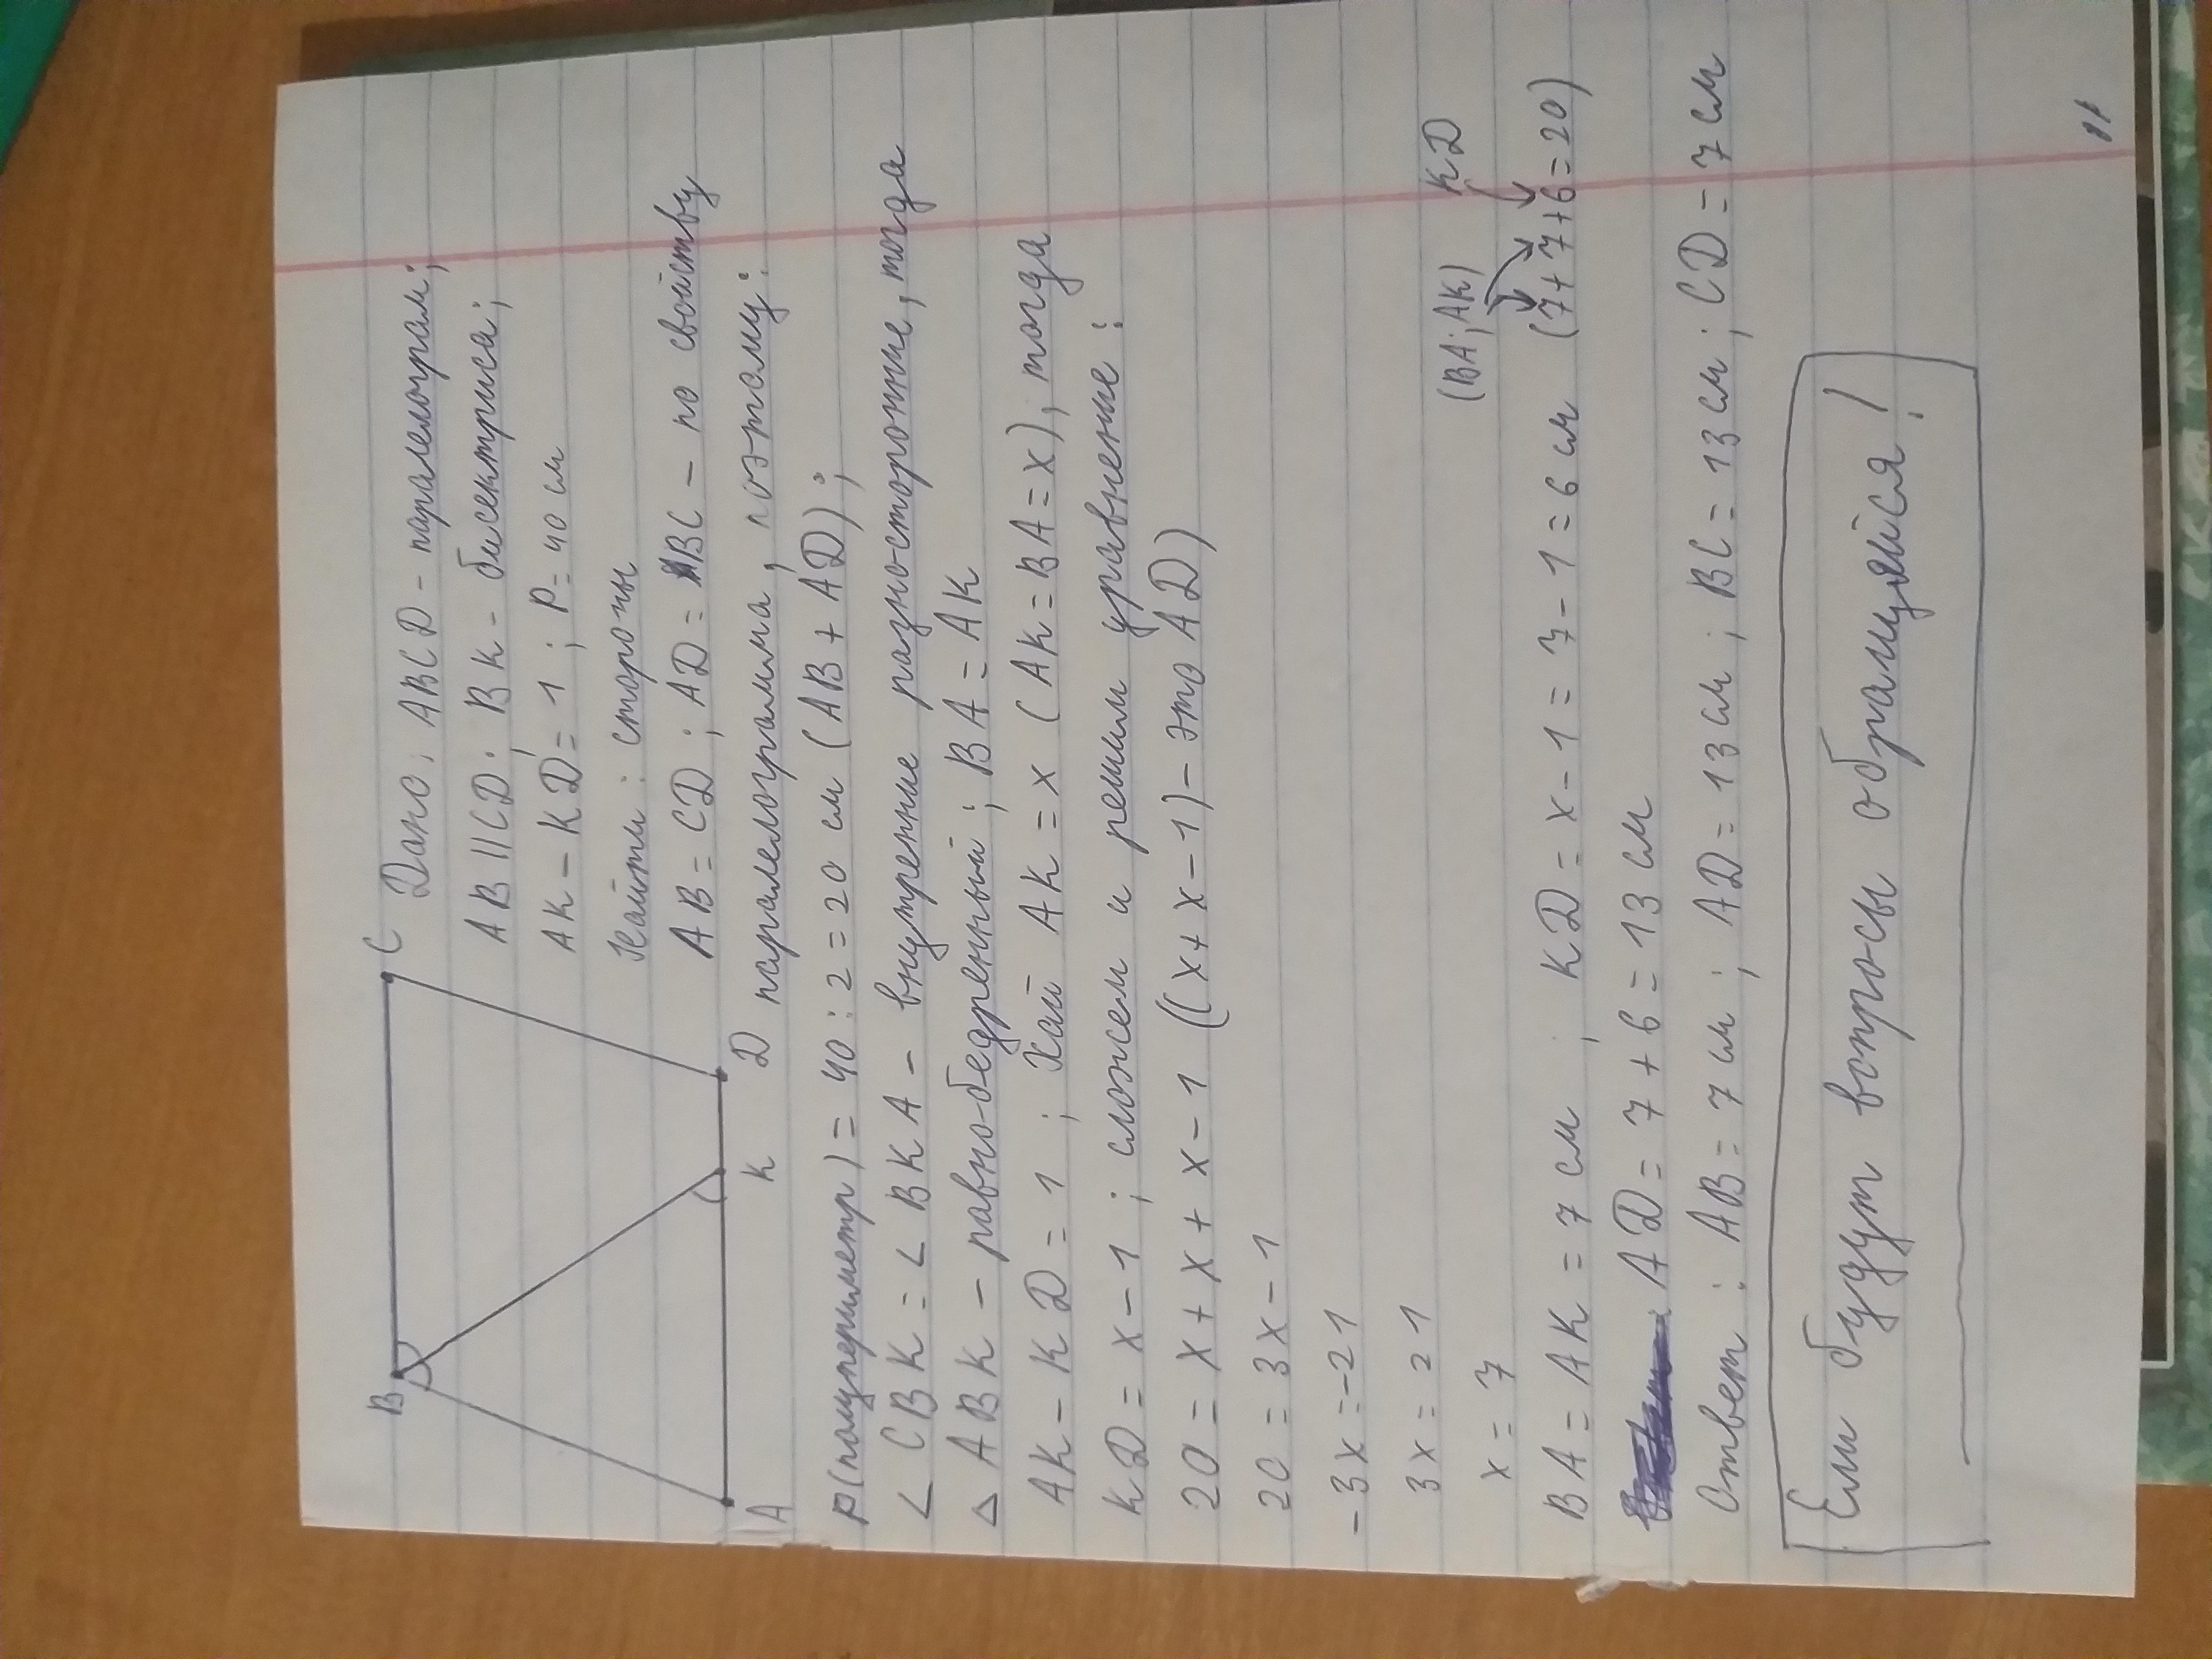 B
C
A
K
D
Дано: ABCD - паралелограм;
AB || CD; BK - бисектриса;
AK - KD = 1; P = 40 см
Найти: стороны
AB = CD; AD = BC - по свойству
паралелограмма, поэтому:
P(полупериметр) = 40 : 2 = 20 см (AB + AD);
∠ CBK = ∠ BKA - внутренние разносторонние, тогда
△ ABK - равно-бедренный; BA = AK
AK - KD = 1; Хай AK = x (AK = BA = x), тогда
KD = x - 1; сложем и решим уравнение:
20 = x + x + x - 1 ((x + x - 1) - это AD)
20 = 3x - 1
-3x = -21
3x = 21
x = 7
(BA; AK) KD
BA = AK = 7 см; KD = x - 1 = 7 - 1 = 6 см (7 + 7 + 6 = 20)
AD = 7 + 6 = 13 см
Ответ: AB = 7 см; AD = 13 см; BC = 13 см; CD = 7 см
Если будут вопросы обращайся!